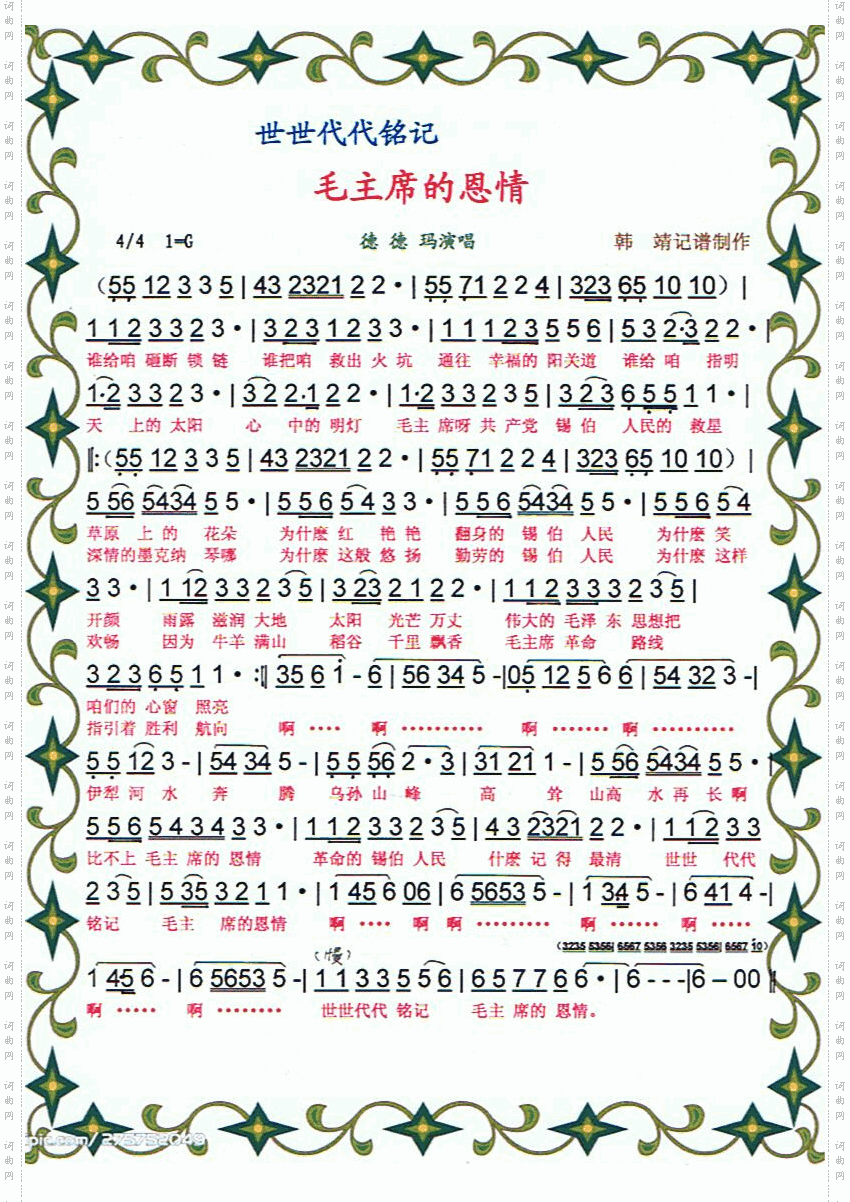 世世代代铭记
毛主席的恩情
4/4 1=G 德 德 玛演唱 韩 靖记谱制作
（55 12 3 3 5 | 43 2321 2 2 · | 55 71 2 2 4 | 323 65 10 10）|
1 1 2 3 3 2 3 · | 3 2 3 1 2 3 3 · | 1 1 1 2 3 5 5 6 | 5 3 2·3 2 2 · |
谁给咱 砸断 锁 链 谁把咱 救出 火 坑 通往 幸福的 阳关道 谁给 咱 指明
1·2 3 3 2 3 · | 3 2 2·1 2 2 · | 1·2 3 3 2 3 5 | 3 2 3 6 5 5 1 1 · |
天 上的 太阳 心 中的 明灯 毛主 席呀 共 产党 锡 伯 人民的 救星
‖:（55 12 3 3 5 | 43 2321 2 2 · | 55 71 2 2 4 | 323 65 10 10）|
5 56 5434 5 5 · | 5 5 6 5 4 3 3 · | 5 5 6 5434 5 5 · | 5 5 6 5 4
草原 上 的 花朵 为什麽 红 艳 艳 翻身的 锡 伯 人民 为什麽 笑
深情的墨克纳 琴哪 为什麽 这般 悠 扬 勤劳的 锡 伯 人民 为什麽 这样
3 3 · | 1 12 3 3 2 3 5 | 3 23 2 1 2 2 · | 1 1 2 3 3 3 2 3 5 |
开颜 雨露 滋润 大地 太阳 光芒 万丈 伟大的 毛泽 东 思想把
欢畅 因为 牛羊 满山 稻谷 千里 飘香 毛主席 革命 路线
3 2 3 6 5 1 1 · :‖ 35 6 1 - 6 | 56 34 5 -|05 12 5 6 6 | 54 32 3 -|
咱们的 心窗 照亮
指引着 胜利 航向 啊 ···· 啊 ·········· 啊 ······· 啊 ··········
5 5 12 3 - | 54 34 5 - | 5 5 56 2 · 3 | 31 21 1 - | 5 56 5434 5 5 · |
伊犁 河 水 奔 腾 乌孙 山 峰 高 耸 山高 水 再 长 啊
5 5 6 5 4 3 4 3 3 · | 1 1 2 3 3 2 3 5 | 4 3 2321 2 2 · | 1 1 2 3 3
比不上 毛主 席的 恩情 革命的 锡伯 人民 什麽 记 得 最清 世世 代代
2 3 5 | 5 35 3 2 1 1 · | 1 45 6 06 | 6 5653 5 - | 1 34 5 - | 6 41 4 -|
铭记 毛主 席的恩情 啊 ···· 啊 啊 ········· 啊 ······ 啊 ·····
（3235 5356| 6567 5356 3235 5356| 6567 10）
（慢）
1 45 6 -| 6 5653 5 -| 1 1 3 3 5 5 6 | 6 5 7 7 6 6 · | 6 - - -|6 – 00 ‖
啊 ····· 啊 ········ 世世代代 铭记 毛主 席的 恩情。
词曲网